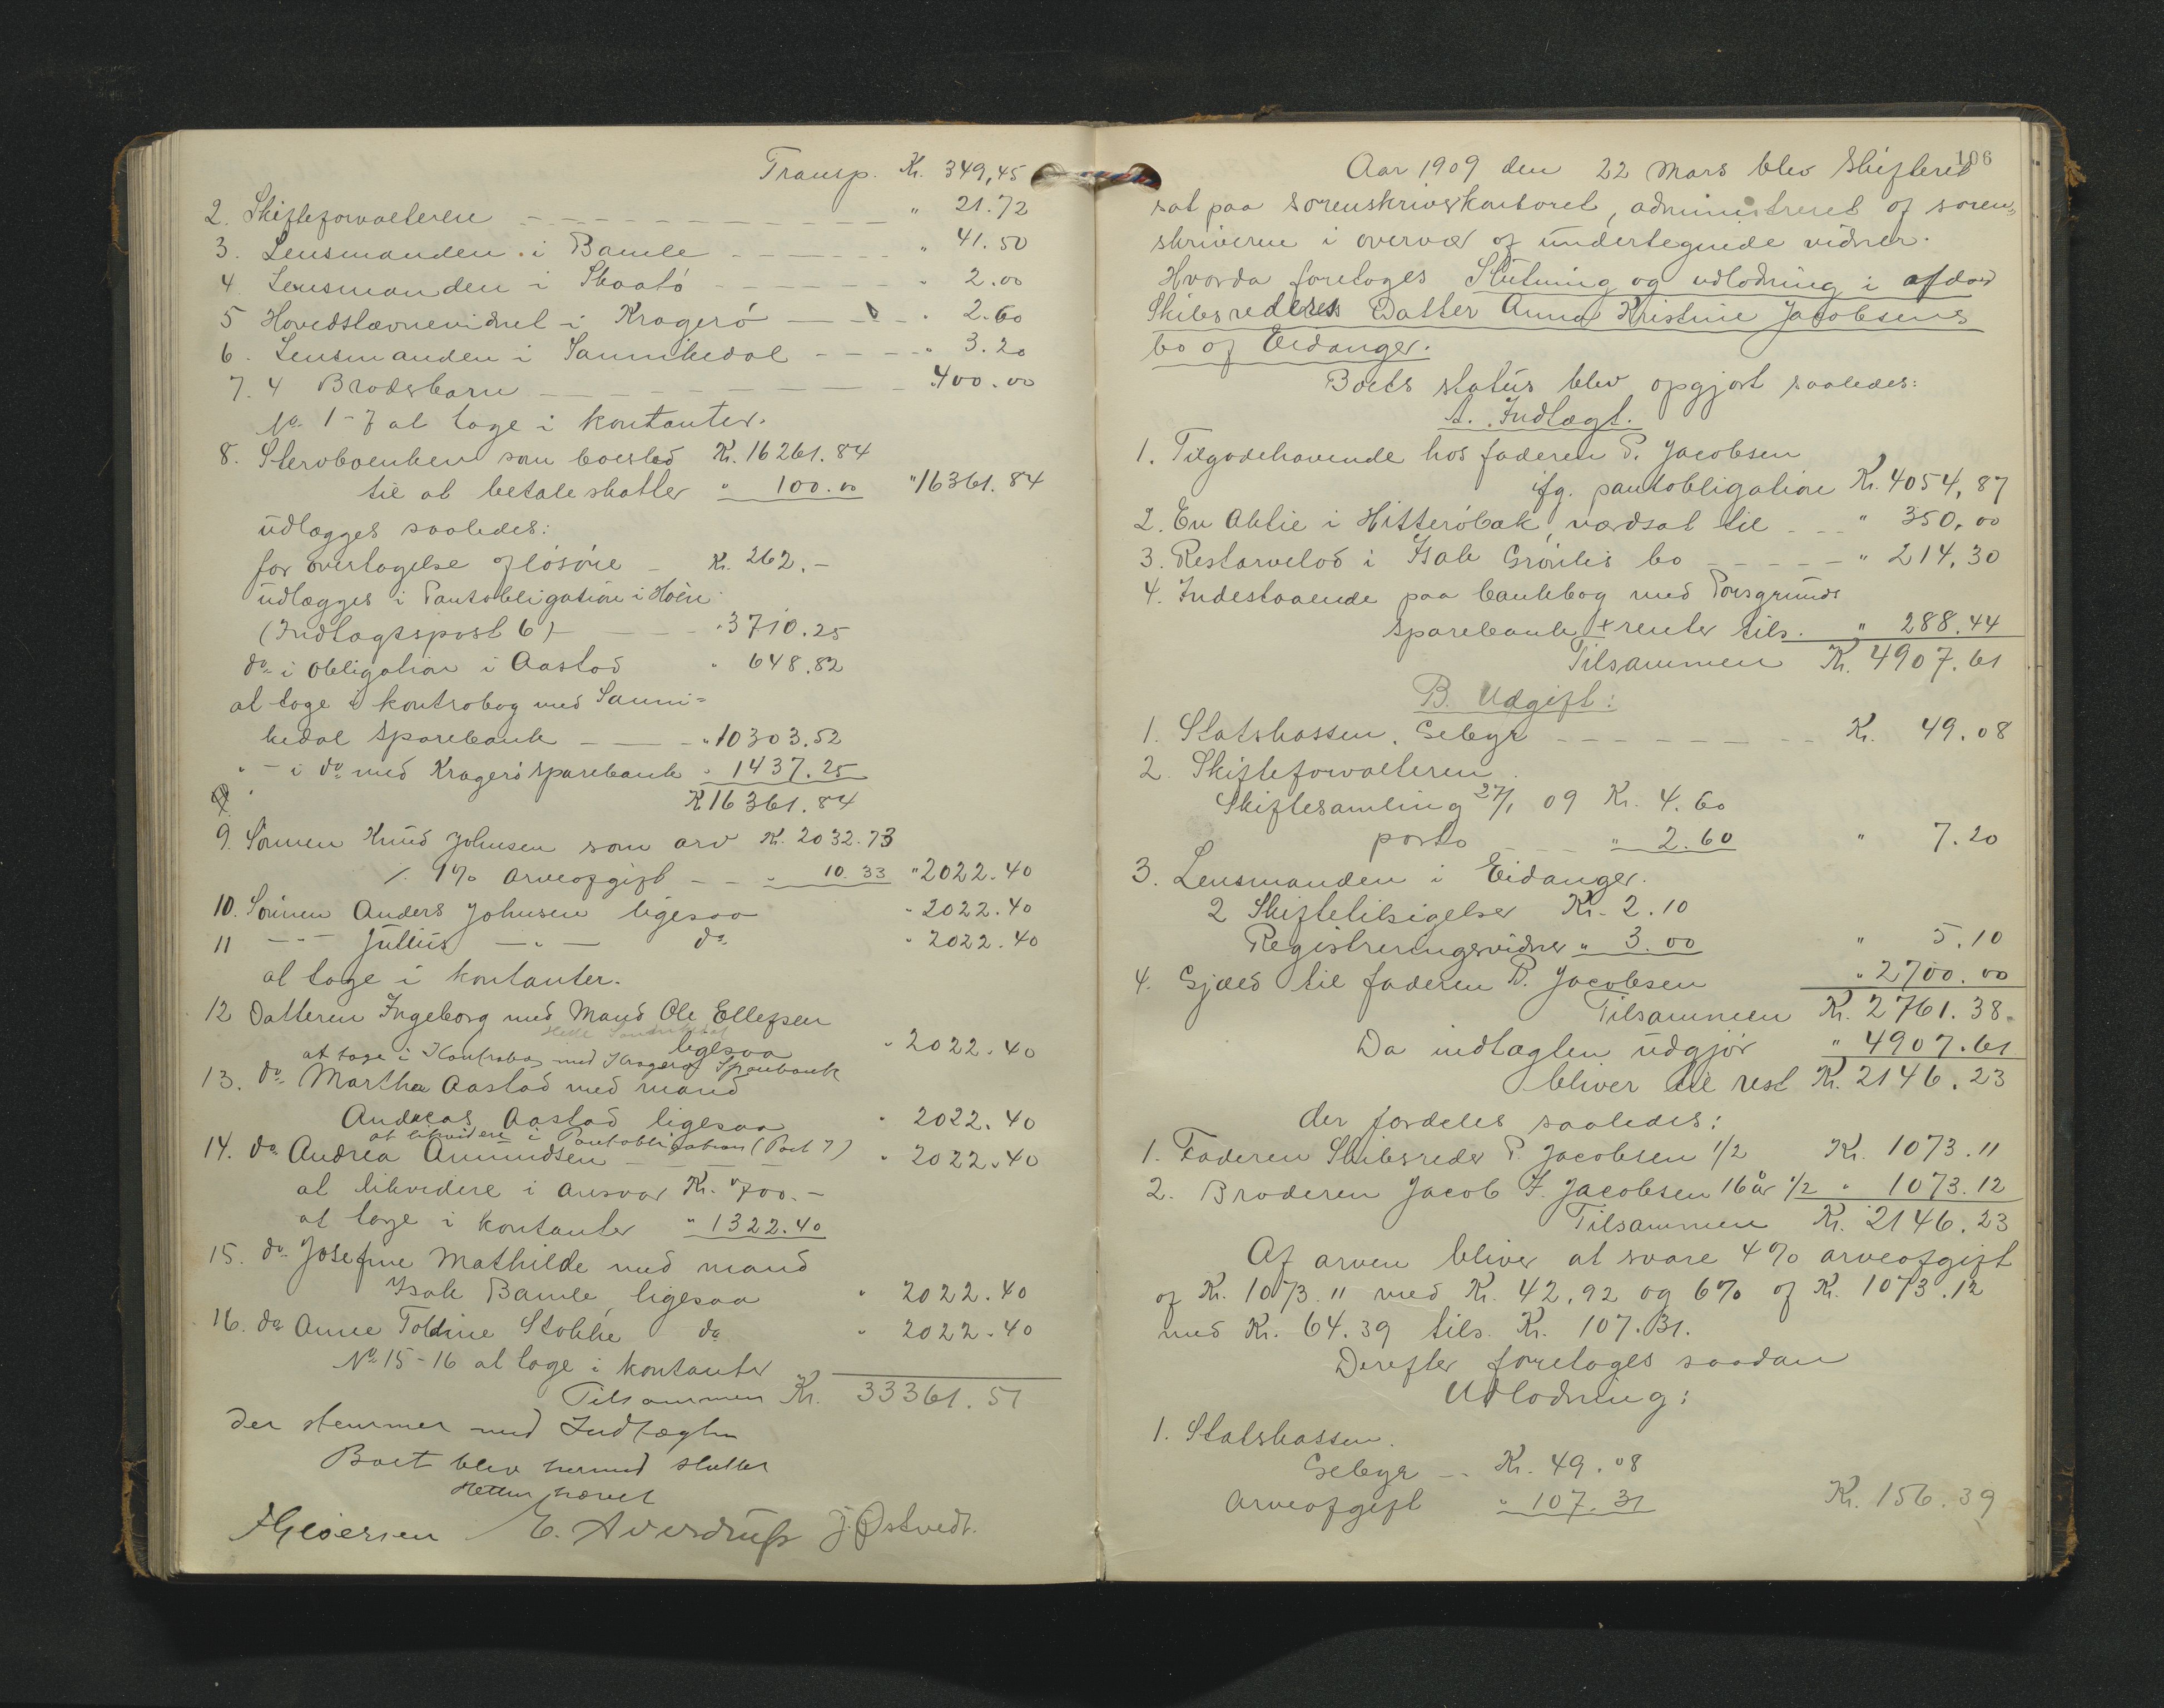 Transp. Kr. 349,45
2. Skifteforvalteren — — — — " 21.72
3. Lensmanden i Bamle — — — " 41.50
4. Lensmanden i Skaatö — — — " 2.00
5 Hovedstævnevidnet i Kragerö — — " 2.60
6. Lensmanden i Sannikedal — — — " 3.20
7. 4 Brodsbarn — — — — 400.00
No 1-7 at tage i kontanter.
8. Stervboenken som boeslod Kr. 16261.84
til at betale skatter " 100.00 " 16361.84
udlægges saaledes:
for overtagelse af lösöre — Kr. 262.—
udlægges i Pantobligation i Höen
(Indtægtspost 6) — — — " 3710.25
do i Obligation i Aastad " 648.82
at tage i kontrabog med Sanni=
kedal Sparebank — — " 10303.52
" — i do med Kragerö Sparebank " 1437.25
K 16361.84
9. Sönnen Knud Johnsen som arv Kr. 2032.73
/. 1% arveafgift — — " 10.33 " 2022.40
10. Sönnen Anders Johnsen ligesaa " 2022.40
11 — " — Julius — " — do " 2022.40
at tage i kontanter.
12 Datteren Ingeborg med Mand Ole Ellefsen
ligesaa " 2022.40
at tage i Kontrabog med Kragerø Sparebank
13. do Martha Aastad med mand
Andreas Aastad ligesaa " 2022.40
at likvidere i Pantobligation (Post 7)
14. do Andrea Amundsen — — — " 2022.40
at likvidere i ansvar Kr. 700.—
at tage i kontanter " 1322.40
15. do Josefine Mathilde med mand
Isak Bamle, ligesaa " 2022.40
16. do Anne Toldine Stokke do " 2022.40
No 15-16 at tage i kontanter
Tilsammen Kr. 33361.51
der stemmer med Indtægten
Boet blev hermed sluttet
Retten hævet
E. Aversdrup J. Østvedt.
106
Aar 1909 den 22 Mars blev Skifteret
sat paa sorenskriverkontoret, administreret af soren=
skriveren i overvær af undertegnede vidner.
Hvorda foretages Slutning og udlodning i afdød
Skibsreders Datter Anna Kristine Jacobsens
bo af Eidanger.
Boets status blev opgjort saaledes:
A. Indtægt.
1. Tilgodehavende hos faderen P. Jacobsen
ifg. pantobligation Kr. 4054,87
2. En Aktie i Hitteröbak, værdsat til — — " 350,00
3. Restarvelod i Isak Grönlis bo — — — — " 214,30
4. Indestaaende paa bankbog med Porsgrunds
Sparebank + renter tils. " 288.44
Tilsammen Kr. 4907.61
B. Udgift:
1. Statskassen. Gebyr — — — — — Kr. 49.08
2. Skifteforvalteren.
Skiftesamling 27/1 09 Kr. 4.60
porto — — " 2.60 " 7.20
3. Lensmanden i Eidanger.
2 Skiftetilsigelser Kr. 2.10
Registreringsvidner " 3.00 " 5.10
4. Gjæld til faderen P. Jacobsen " 2700.00
Tilsammen Kr. 2761.38.
Da indtægten udgjør " 4907.61
bliver til rest Kr. 2146.23
der fordeles saaledes:
1. Faderen Skibsreder P. Jacobsen 1/2 Kr. 1073.11
2. Broderen Jacob F. Jacobsen 16 år 1/2 " 1073.12
Tilsammen Kr. 2146.23
Af arven bliver at svare 4% arveafgift
af Kr. 1073.11 med Kr. 42.92 og 6% af Kr. 1073.12
med Kr. 64.39 tils. Kr. 107.31.
Derefter foretages saadan
Udlodning:
1. Statskassen.
Gebyr — Kr. 49.08
Arveafgift " 107.31 Kr. 156.39